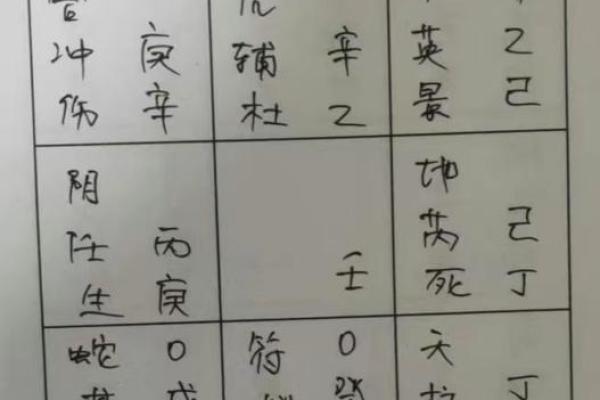 冲 庚
伤 辛
辅 辛
杜 乙
英 乙
景 己
阴
任 丙
生 庚
壬
地
芮 己
死 丁
蛇 0
符 0
天
丁